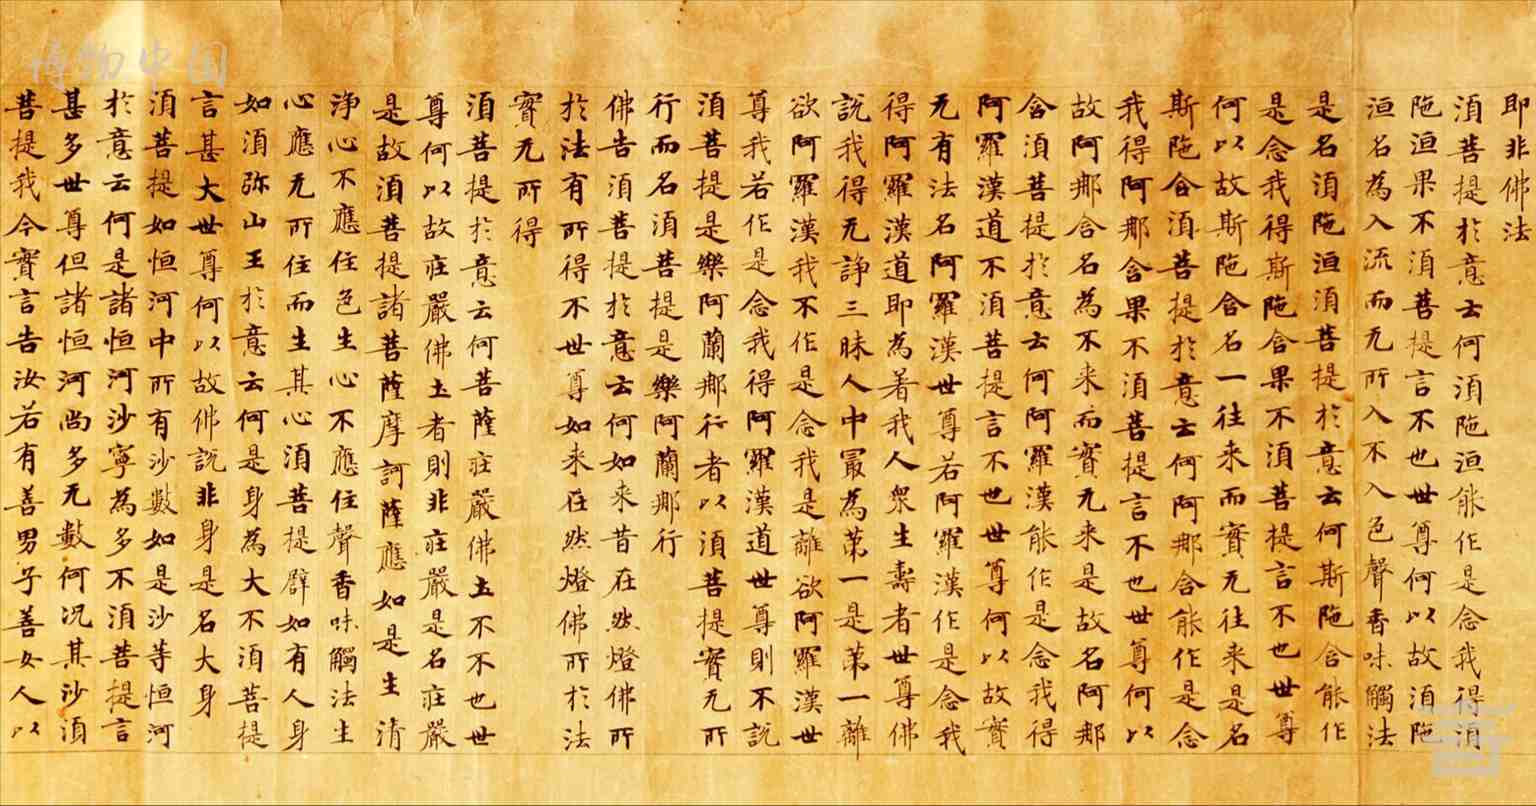 博物中国
即非佛法
須菩提於意云何須陁洹能作是念我得須
陁洹果不須菩提言不也世尊何以故須陁
洹名為入流而无所入不入色聲香味觸法
是名須陁洹須菩提於意云何斯陁含能作
是念我得斯陁含果不須菩提言不也世尊
何以故斯陁含名一往来而實无往来是名
斯陁含須菩提於意云何阿那含能作是念
我得阿那含果不須菩提言不也世尊何以
故阿那含名為不来而實无来是故名阿那
含須菩提於意云何阿羅漢能作是念我得
阿羅漢道不須菩提言不也世尊何以故實
无有法名阿羅漢世尊若阿羅漢作是念我
得阿羅漢道即為著我人衆生壽者世尊佛
說我得无諍三昧人中冣為苐一是苐一離
欲阿羅漢我不作是念我是離欲阿羅漢世
尊我若作是念我得阿羅漢道世尊則不說
須菩提是樂阿蘭那行者以須菩提實无所
行而名須菩提是樂阿蘭那行
佛告須菩提於意云何如来昔在然燈佛所
於法有所得不世尊如来在然燈佛所於法
實无所得
須菩提於意云何菩薩莊嚴佛土不不也世
尊何以故莊嚴佛土者則非莊嚴是名莊嚴
是故須菩提諸菩薩摩訶薩應如是生清
淨心不應住色生心不應住聲香味觸法生
心應无所住而生其心須菩提辟如有人身
如須弥山王於意云何是身為大不須菩提
言甚大世尊何以故佛說非身是名大身
須菩提如恒河中所有沙數如是沙等恒河
於意云何是諸恒河沙寧為多不須菩提言
甚多世尊但諸恒河尚多无數何況其沙須
菩提我今實言告汝若有善男子善女人以